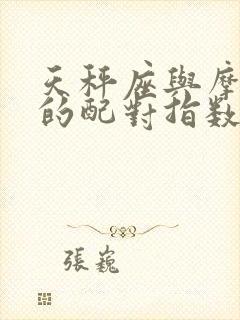 天秤座與摩
的配對指數
張巍